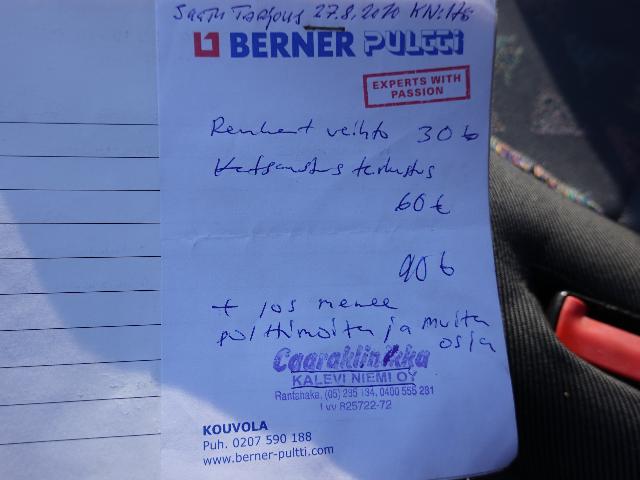 Saatu Tarjous 27.8.2020 KN:HS
BERNER PULTTI
EXPERTS WITH
PASSION
Renkaat veihto 30 €
Katsastus tarkastus
60 €
90 €
+ jos menee
polttimoita ja muita
osia
Caaraklinikka
KALEVI NIEMI OY
Rantahaka, (05) 235 134, 0400 555 281
Lvv R25722-72
KOUVOLA
Puh. 0207 590 188
www.berner-pultti.com